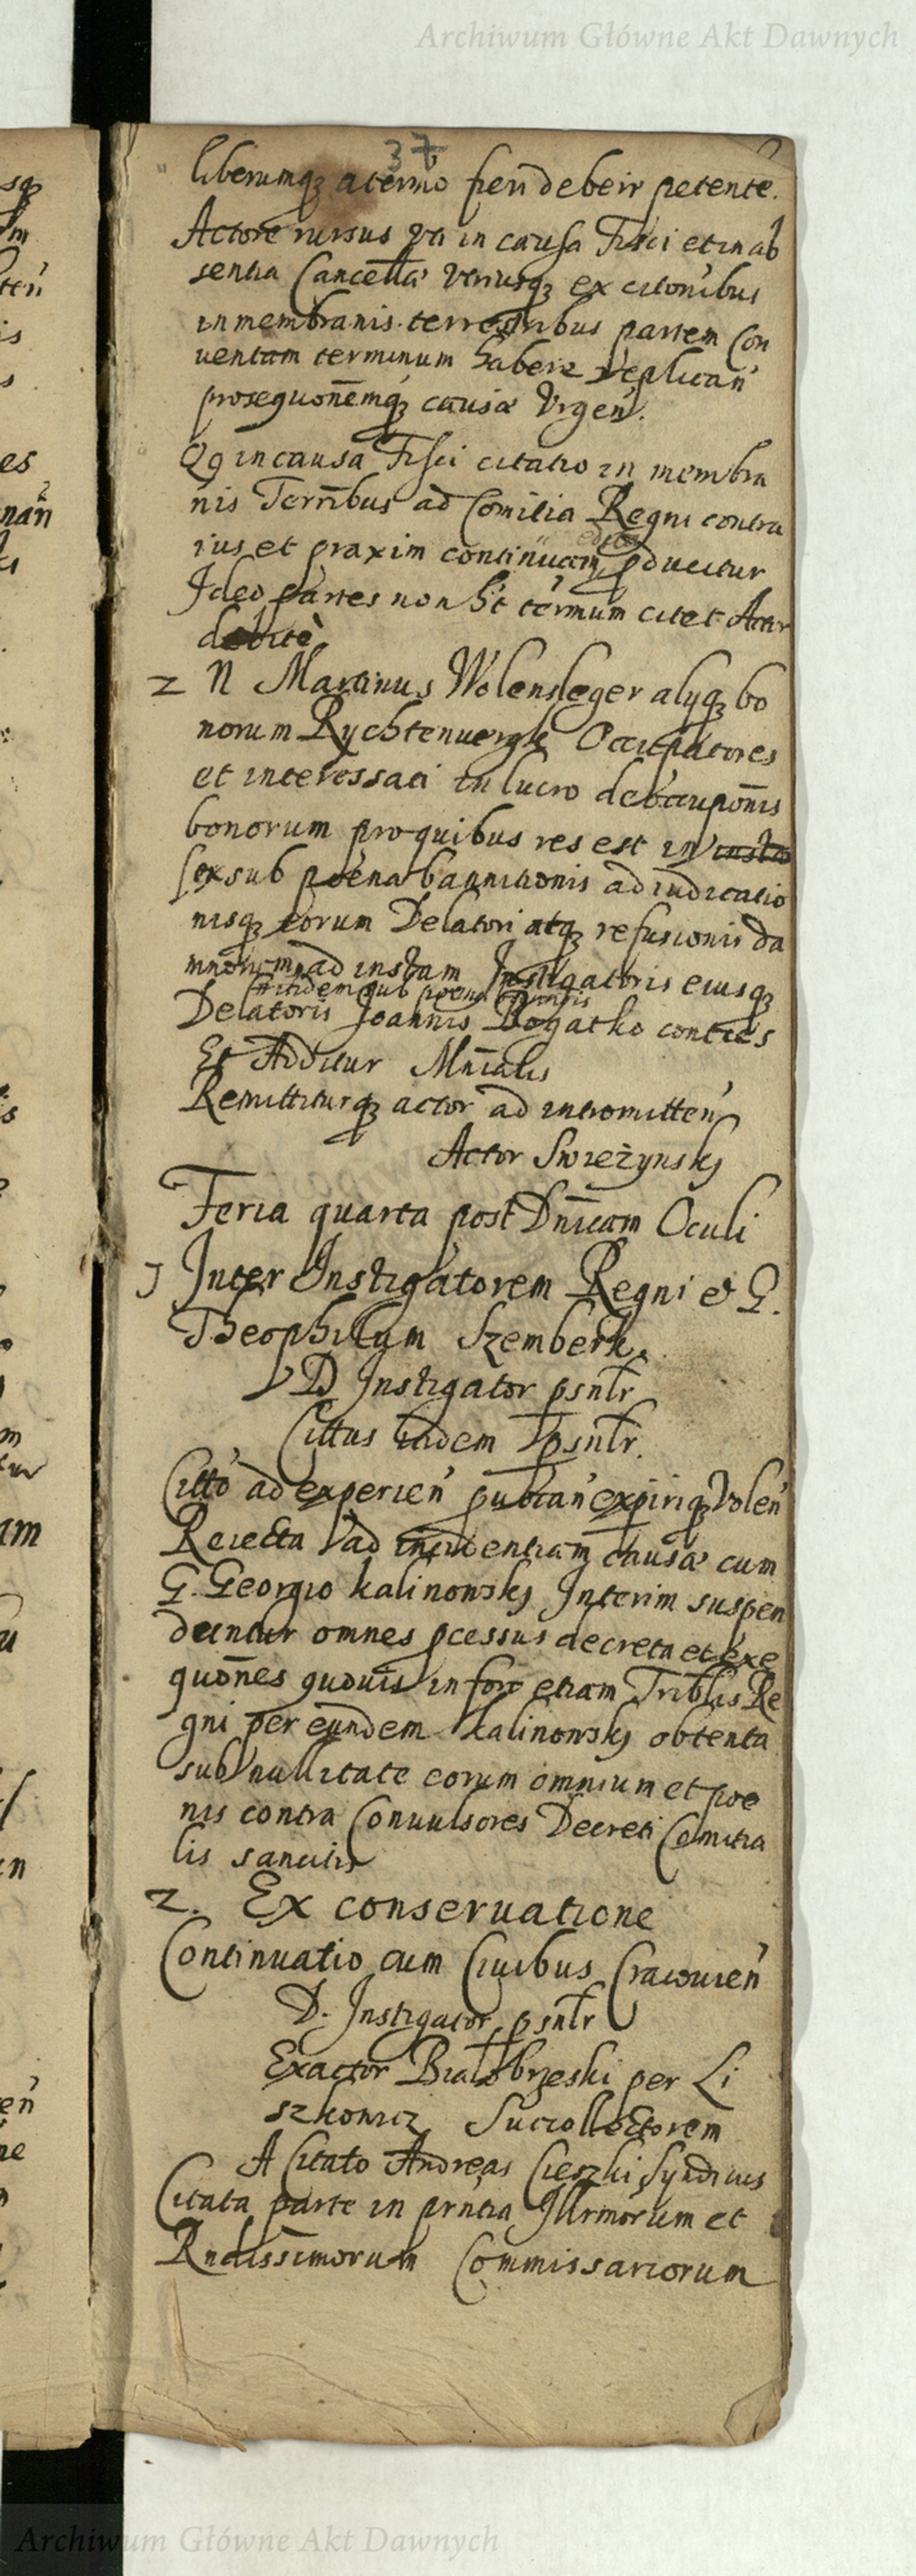 Archiwum Główne Akt Dawnych
37
liberumq₃ a termo fieri debeir petente.
Actore rursus uti in causa Fisci et in ab
sentia Cancella utriusq₃ ex citonibus
in membranis terrestribus partem Con
uentam terminum habere replican
prosequonemq₃ causæ Urgen.
Qq in causa Fisci citatio in membra
nis Terribus ad Comitia Regni contra
edita
ius et praxim continuam pducitur
Ideo partes non ht termum citet Actor
debite
2 N Martinus Wolensleger alyq₃ bo
norum Rychtenwergk Occupatores
et interessati in lucro deoccuponis
bonorum pro quibus res est in
sub poena bannitionis adiudicatio
nisq₃ eorum Delatori atq₃ refusionis da
mnorum ad instam Instigatoris eiusq₃
itidem sub poena
Delatoris Joannis Bogatko conties
Et Additur Mnialis
Remittiturq₃ actor ad intromitten
Actor Swiezynsky
Feria quarta post Dnicam Oculi
1 Inter Instigatorem Regni et G.
Theophilum Szemberk.
D Instigator psnlr
Cittus iadem psnlr.
Citto ad experien putan expiriq₃ volen
Reiecta ad incidentiam causæ cum
G. Georgio Kalinowsky Interim suspen
duntur omnes pcessus decreta et exe
quones quouis in foro etiam Triblis Re
gni per eundem Kalinowsky obtenta
sub nullitate eorum omnium et poe
nis contra Conuulsores Decreti Comitia
lis sancitis
2. Ex conseruatione
Continuatio cum Ciuibus Cracouien
D. Instigator psnlr
Exactor Bialobrzeski per Li
szkowicz Succollectorem
A Citato Andreas Cieszki Syndicus
Citata parte in prntia Illrmorum et
Rndissimorum Commissariorum
Archiwum Główne Akt Dawnych